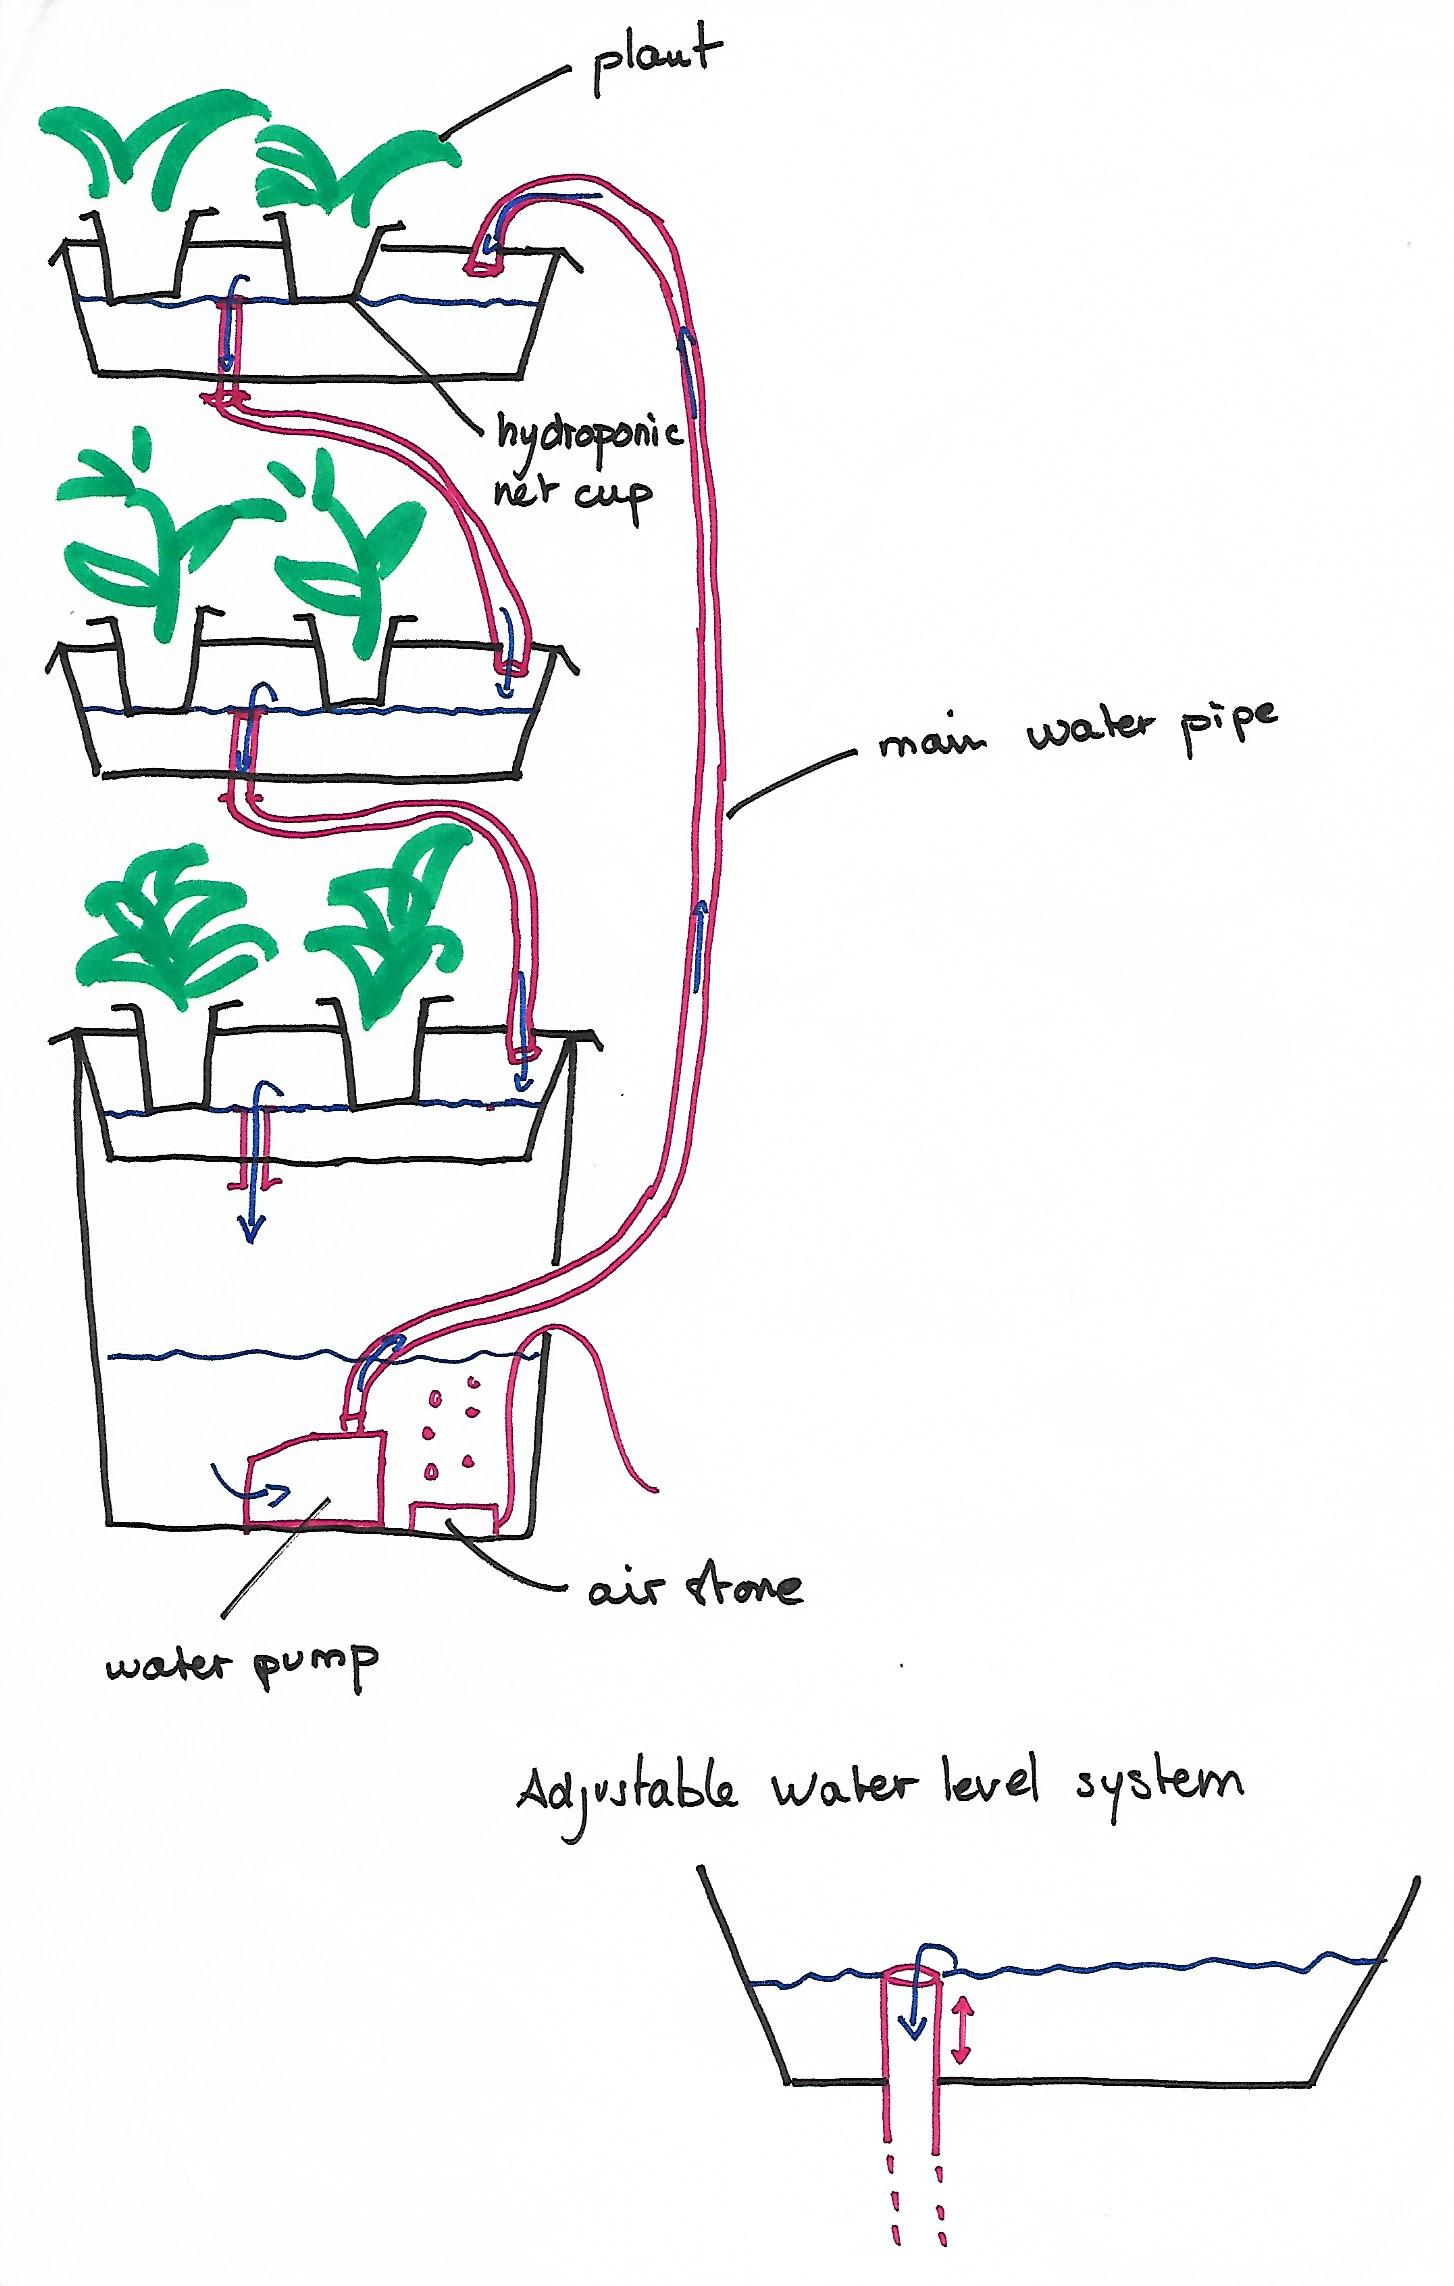 plant
hydroponic
net cup
main water pipe
air stone
water pump
Adjustable water level system